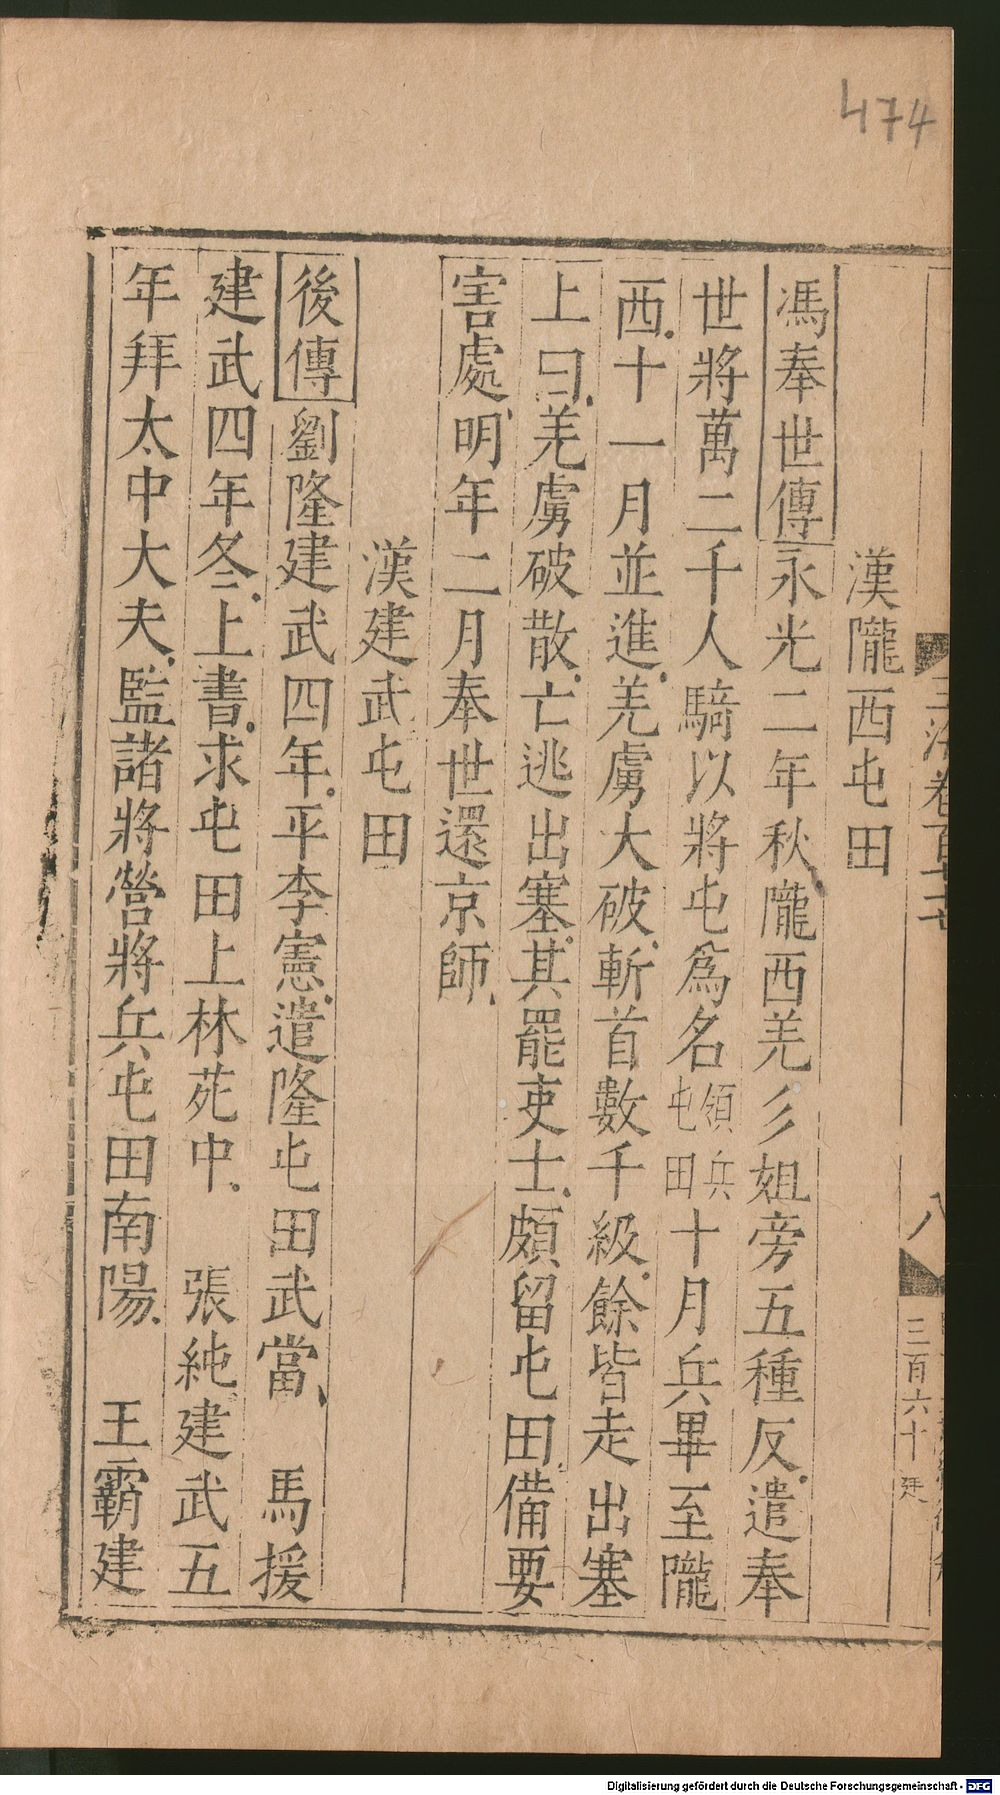 474
玉海卷百七十七
八
三百六十
漢隴西屯田
馮奉世傳永光二年秋隴西羌彡姐旁五種反遣奉
世將萬二千人騎以將屯爲名領兵屯田十月兵畢至隴
西十一月並進羌虜大破斬首數千級餘皆走出塞
上曰羌虜破散亡逃出塞其罷吏士頗留屯田備要
害處明年二月奉世還京師
漢建武屯田
後傳劉隆建武四年平李憲遣隆屯田武當 馬援
建武四年冬上書求屯田上林苑中 張純建武五
年拜太中大夫監諸將營將兵屯田南陽 王霸建
Digitalisierung gefördert durch die Deutsche Forschungsgemeinschaft - DFG